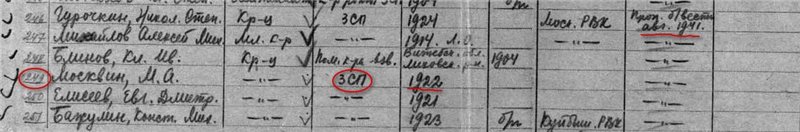 246 Гурочкин, Никол. Степ. Кр-ц 3 СП 1924 Моск. РВК Проп. б/вести
247 Михайлов Алексей Мих. Мл. к-р —"— 1914 Л.О. —"— авг. 1941.
248 Блинов, Кл. Ив. Кр-ц Пом. к-ра взв. Витебск. обл. Лиознов. р-н 1904
249 Москвин, М. А. —"— 3 СП 1922 —"— —"—
250 Елисеев, Евг. Дмитр. —"— —"— 1921 —"—
251 Бажулин, Конст. Мих. —"— —"— 1923 б/п Куйбыш. РВК —"—